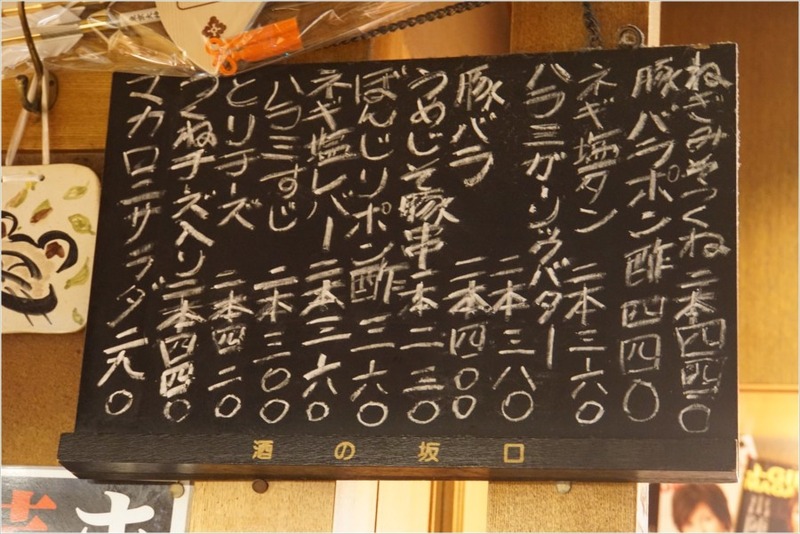 ねぎみそつくね 二本四四〇
豚バラポン酢 四四〇
ネギ塩タン 二本三六〇
ハラミガーリックバター 二本三八〇
豚バラ 二本四〇〇
うめじそ豚串 二本二三〇
ぼんじりポン酢 三六〇
ネギ塩レバー 二本二六〇
ハラミすじ 二本三〇〇
とりチーズ 二本四二〇
つくねチーズ入り 二本四四〇
マカロニサラダ 二九〇
酒の坂口